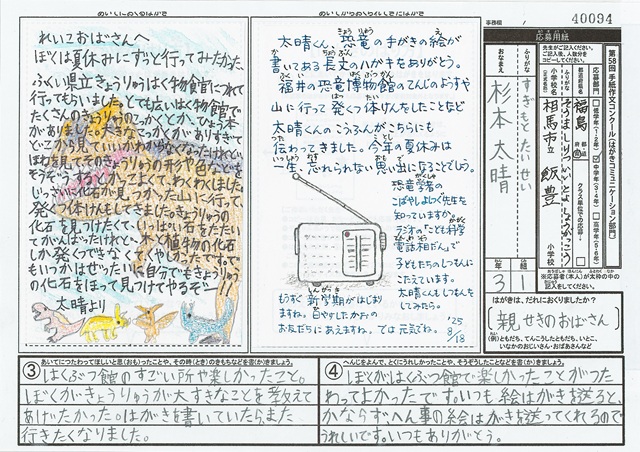 あいてにおくるはがき
れいこおばさんへ
ぼくは夏休みにずっと行ってみたかった、
ふくい県立きょうりゅうはく物館につれて
行ってもらいました。とても広いはく物館で
たくさんのきょうりゅうのこっかくとか、ひょう本
がありました。大きなこっかくがありすぎて
どこから見ていいかわからなくなったけれど、
ほねを見てそのきょうりゅうの形や色などを
じっさいに化石が見つかった山に行って、
発くつ体けんもしてきました。きょうりゅうの
化石を見つけたくて、いっぱい石をたたい
てがんばったけれど、木とか植物の化石
しか発くつできなくてくやしかったです。で
もいつかはぜったいに自分でもきょうりゅう
の化石をほって見つけてやるぞー!!
太晴より
あいてからおくられてきたはがき
太晴くん、恐竜の手がきの絵が
書いてある長文のハガキをありがとう。
福井の恐竜博物館のてんじのようすや
山に行って発くつ体けんをしたことなど
太晴くんのこうふんがこちらにも
伝わってきました。今年の夏休みは
一生、忘れられない思い出になることでしょう。
恐竜学者の
こばやしよしつぐ先生を
知っていますか。
ラジオの「こども科学
電話相だん」で
子どもたちのしつもんに
こたえています。
太晴くんもしつもんを
してみたら。
もうすぐ新学期がはじまり
ますね。
お友だちにあえますね。では元気でね。
'25
8/18
事務欄
40094
応募用紙
第58回 手紙作文コンクール(はがきコミュニケーション部門)
おなまえ
ふりがな
すぎもと たいせい
杉本 太晴
福島
相馬市立
飯豊
小学校
年
組
3
1
はがきは、だれにおくりましたか?
親せきのおばさん
(例)ともだち、てんこうしたともだち、いとこ、
いなかのおじいさん・おばあさんなど
③
あいてにつたわってほしいと思(おも)ったことや、その時(とき)のきもちなどを書(か)きましょう。
はくぶつ館のすごい所や楽しかったこと。
ぼくがきょうりゅうが大すきなことを教えて
あげたかった。はがきを書いていたら、また
行きたくなりました。
④
へんじをよんで、とくにうれしかったことや、そうぞうしたことなどを書(か)きましょう。
ぼくがはくぶつ館で楽しかったことがつた
わってよかったです。いつも絵はがきを送ると、
かならず、へん事の絵はがきを送ってくれるので
うれしいです。いつもありがとう。